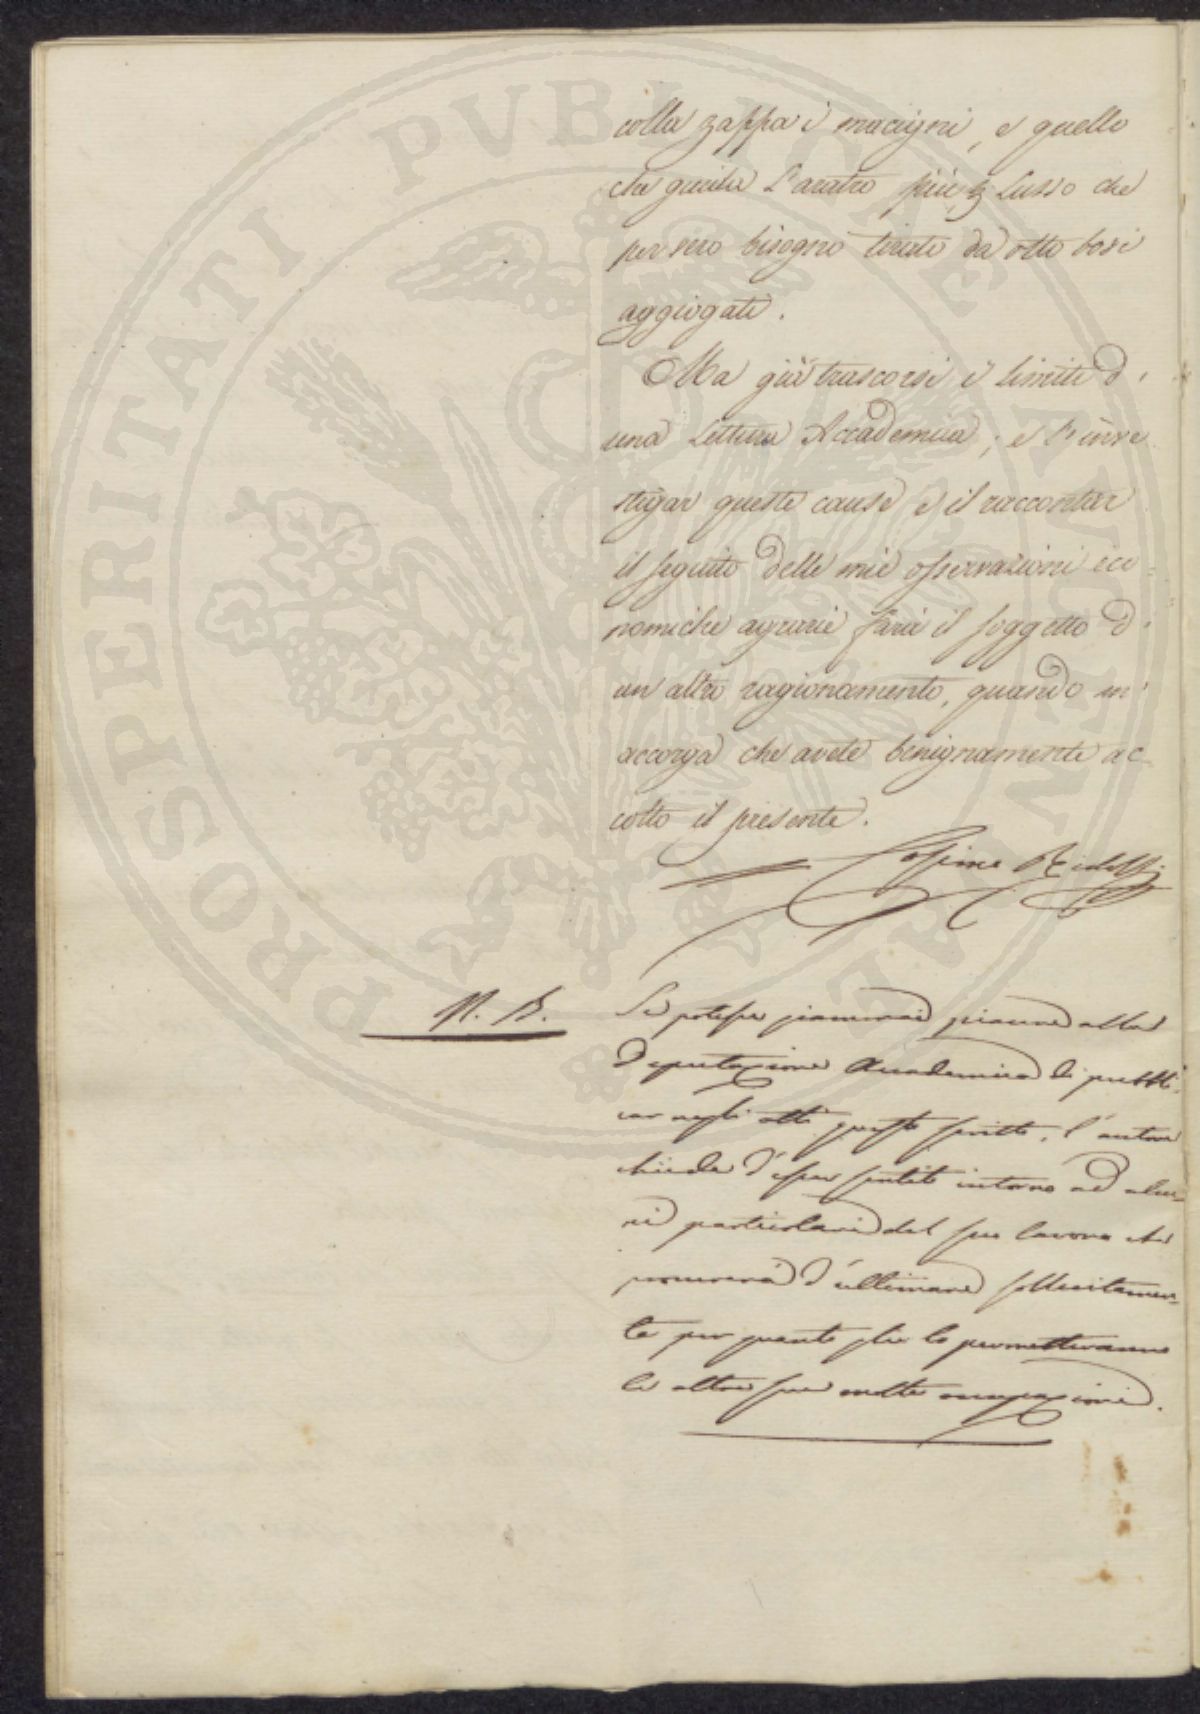 colla zappa i macigni, e quello
che guida l'aratro più p lusso che
per vero bisogno tirato da otto bovi
aggiogati.
Ma già trascorsi i limiti d'
una Lettura Accademica; e l'inve
stigar queste cause e il raccontar
il seguito delle mie osservazioni eco=
nomiche agrarie farà il soggetto d'
un altro ragionamento, quando m'
accorga che avete benignamente ac-
colto il presente.
Cosimo Ridolfi
N. B.
Se potesse giammai piacere alla
Deputazione Accademica di pubbli-
car negli atti questo scritto, l'autore
chiede d'esser sentito intorno ad alcu-
ni particolari del suo lavoro che
procurerà d'ultimare sollecitamen-
te per quanto glie lo permetteranno
le altre sue molte occupazioni.
PROSPERITATI PUBLICAE AUGENDAE